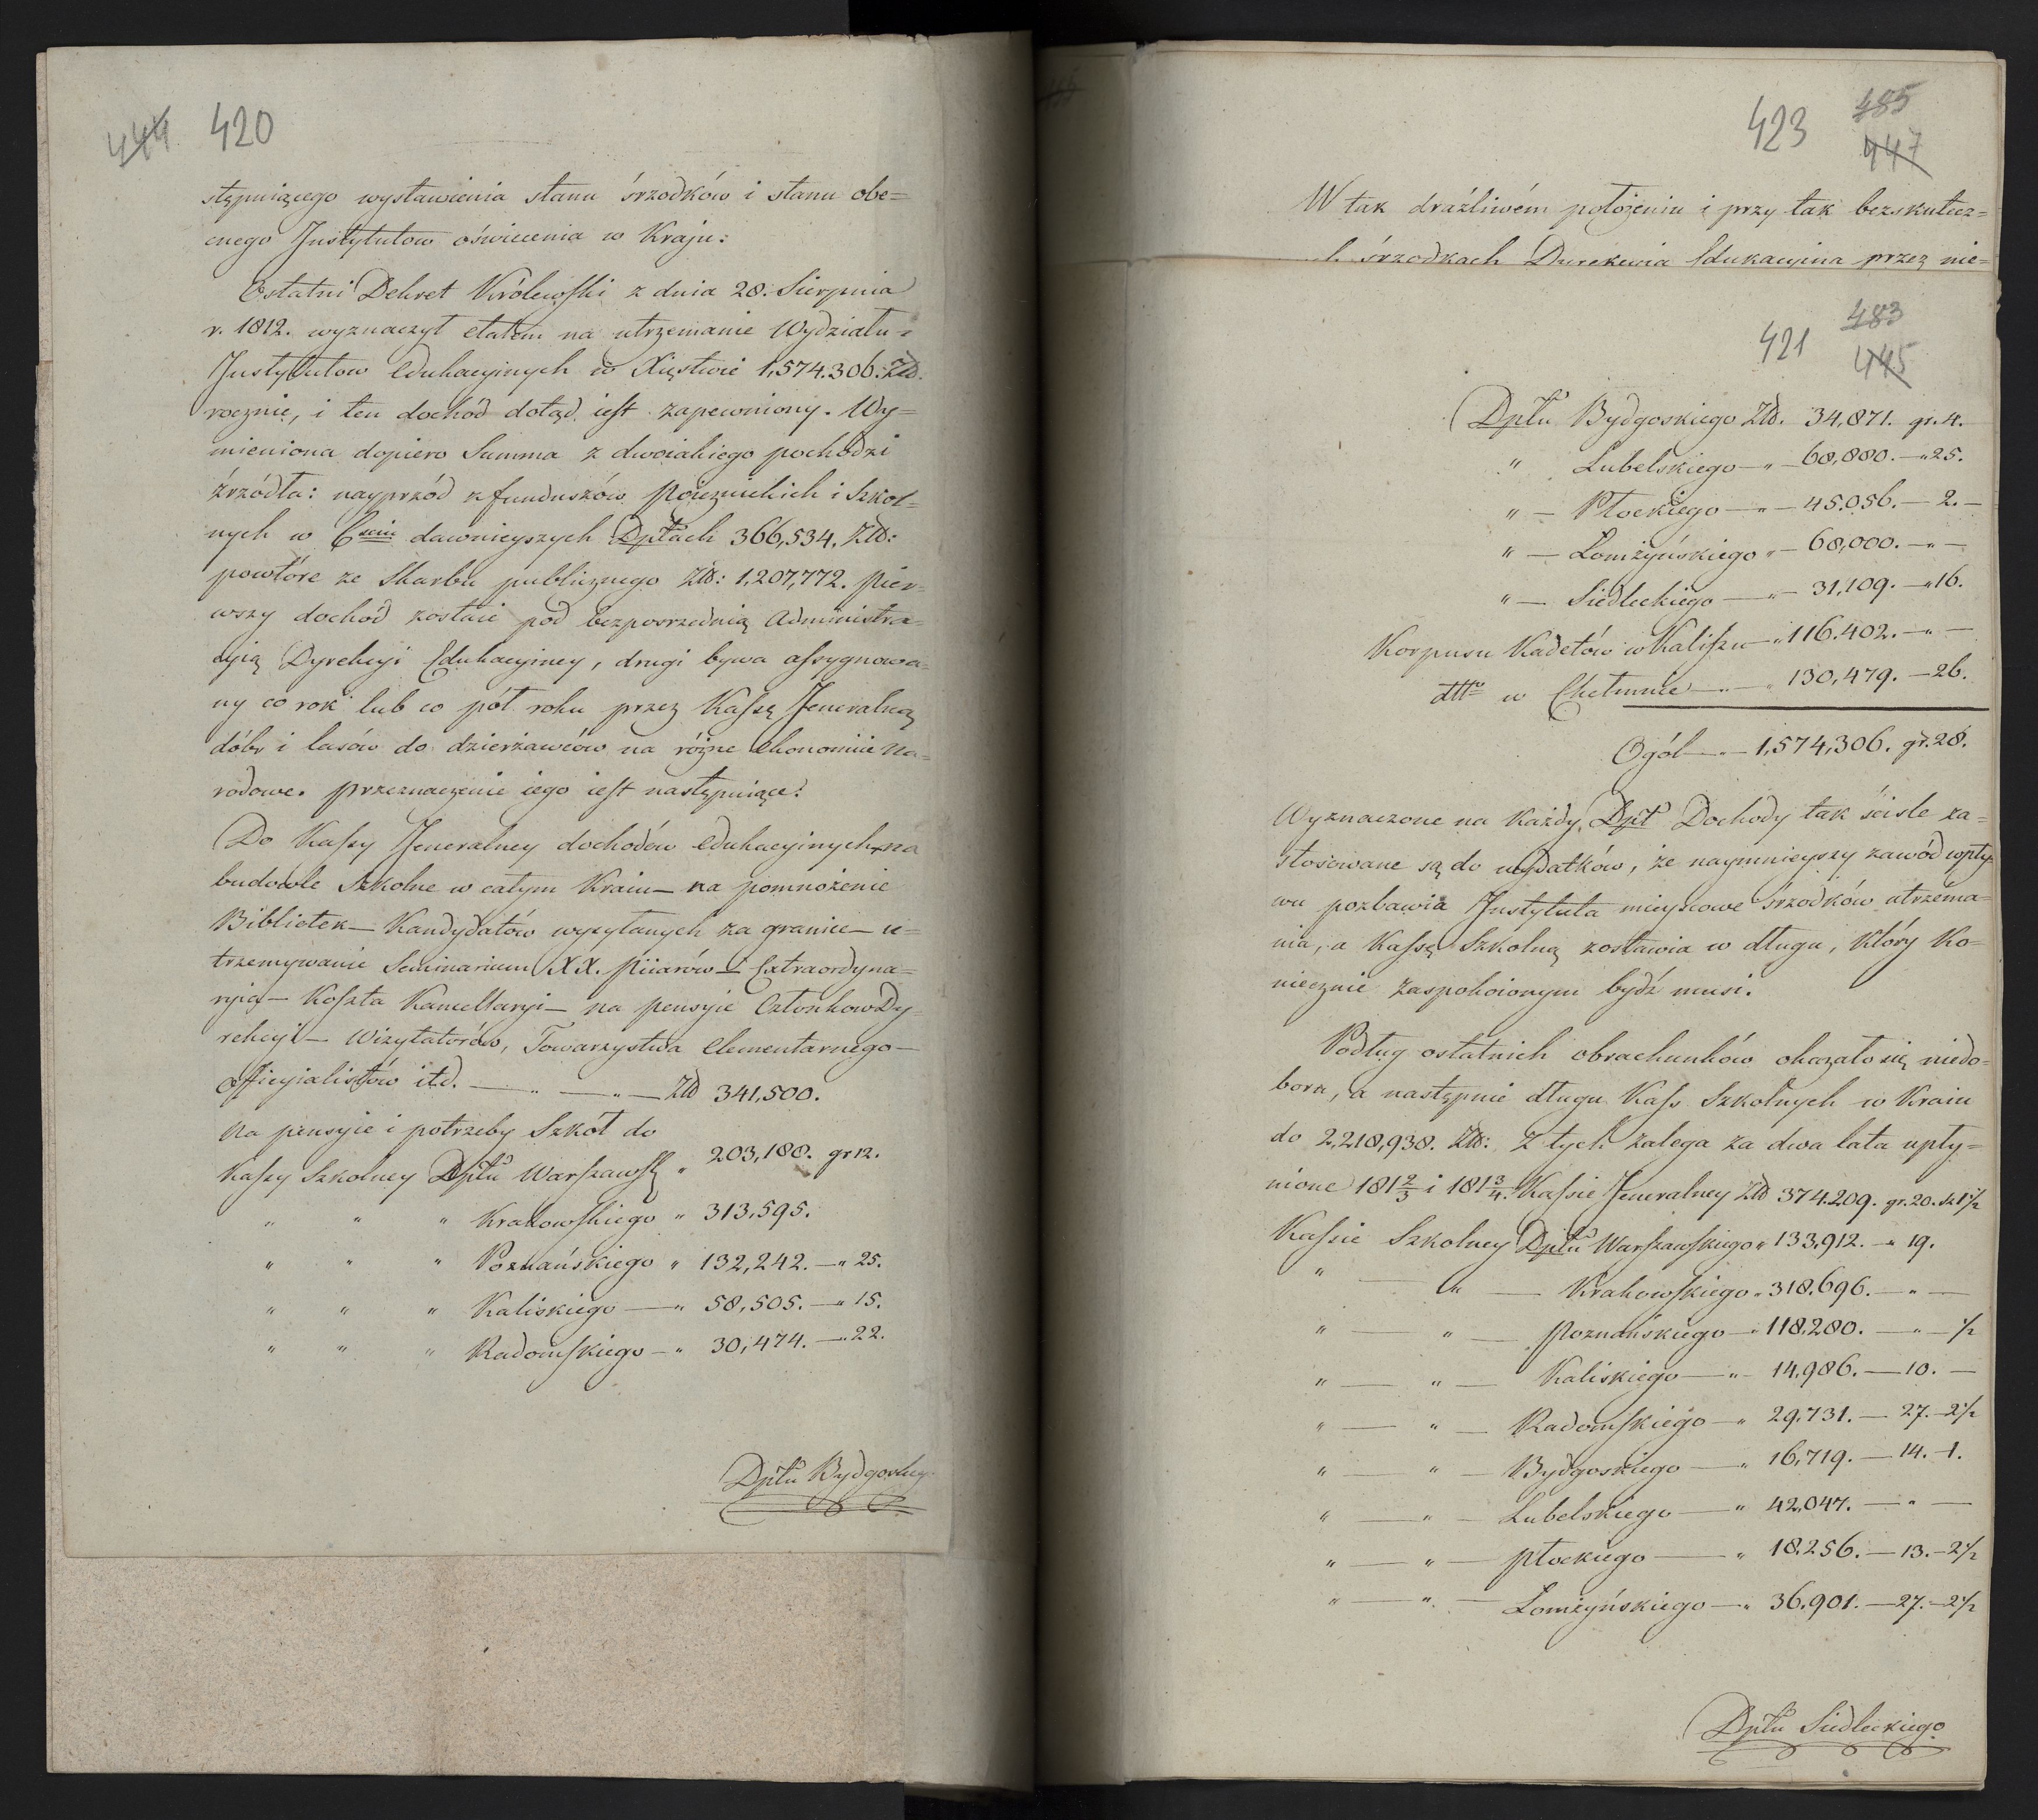 444 420
stępuiącego wystawienia stanu śrzodków i stanu obe=
cnego Instytutow oświecenia w Kraju:
Ostatni Dekret Królewski z dnia 28. Sierpnia
r. 1812. wyznaczył etatem na utrzemanie Wydziału =
Instytutow Edukacyinych w Xięstwie 1,574.306. Złł.
rocznie, i ten dochód dotąd iest zapewniony. Wy=
mieniona dopiero Summa z dwoiakiego pochodzi
źrzódła: nayprzód z funduszów Poiezuickich i Szkol=
nych w 6ciu dawnieyszych Dpttach 366,534. Złł:
powtóre ze Skarbu publicznego Złł: 1,207,772. Pier=
wszy dochód zostaie pod bezposrzednią Administra=
cyią Dyrekcyi Edukacyiney, drugi bywa assygnowa=
ny co rok lub co pół roku przez Kassę Jeneralną
dóbr i lasów do dzierżawców na różne ekonomiie Na=
rodowe. Przeznaczenie iego iest następuiące:
Do Kassy Jeneralney dochodów edukacyinych na
budowle Szkolne w całym Kraiu — na pomnożenie
Bibliotek — Kandydatów wysyłanych za granicę — u=
trzemywanie Seminarium XX. Piiarów — i Extraordyna=
ryia — Koszta Kancellaryi — na pensyie Członkow Dy=
rekcyi — Wizytatorów, Towarzystwa Elementarnego —
Officyialistów itd. — " — " — Złł 341,500.
Na pensyie i potrzeby Szkół do
Kassy Szkolney Dpttu Warszawsk " 203,180. gr 12.
" " " Krakowskiego " 313,595.
" " " Poznańskiego " 132,242. — " 25.
" " " Kaliskiego — " 58,505. — " 15.
" " " Radomskiego — " 30,474. — " 22.
Dpttu Bydgoskieg
423 485
447
W tak draźliwém położeniu i przy tak bezskutecz=
śrzodkach Dyrekcyia Edukacyina przez nie=
421 483
445
Dpttu Bydgoskiego Złł. 34,871. gr. 4.
" Lubelskiego — " — 68,880. — " 25.
" — Płockiego — " — 45.056. — 2. —
" — Łomżyńskiego " — 68,000. — " —
" — Siedleckiego — " — 31,109. — " 16.
Korpusu Kadetów w Kaliszu — " 116.402. — " —
dtto w Chełmnie — " — " 130,479. — 26.
Ogół — " — 1,574,306. gr. 28.
Wyznaczone na każdy Dptt Dochody tak ściśle za=
stosowane są do wydatków, że naymnieyszy zawód wpły=
wu pozbawia Instytuta mieyscowe śrzodków utrzéma=
nia, a Kassę Szkolną zostawia w długu, który Ko=
niecznie zaspokoionym bydź musi.
Podług ostatnich obrachunków okazało się niedo=
boru, a następnie długu Kass Szkolnych w Kraiu
do 2,218,938. Złł: Z tych zalega za dwa lata upły=
nione 181 2/3 i 181 3/4. Kassie Jeneralney Złł 374.209. gr. 20. sz 1 1/2
Kassie Szkolney Dpttu Warszawskiego " 133,912. — " 19.
" — " — Krakowskiego " 318.696. — " —
" — " — Poznańskiego — " 118.280. — " — 1/2
" — " — Kaliskiego — " — 14,986. — 10. —
" — " — Radomskiego — " 29.731. — 27. — 2 1/2
" — " Bydgoskiego — " 16,719. — 14. — 1.
" — " — Lubelskiego — " 42,047. — " —
" — " — Płockiego — " 18.256. — 13. — 2 1/2
" — " — Łomżyńskiego — " 36.901. — 27. — 2 1/2
Dpttu Siedleckiego